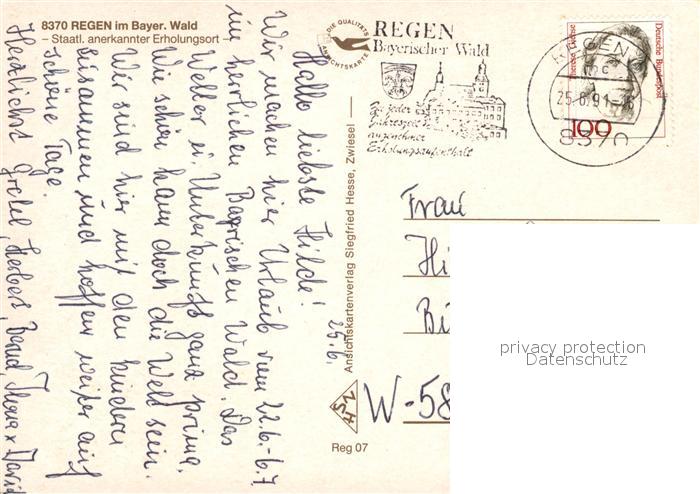 8370 REGEN im Bayer. Wald
– Staatl. anerkannter Erholungsort –
DIE QUALITÄTS
ANSICHTSKARTE
REGEN
Bayerischer Wald
Zu jeder
Jahreszeit
angenehmer
Erholungsaufenthalt
REGEN
25.6.91
8370
Deutsche Bundespost
100
25.6.
Hallo liebste Hilde!
Wir machen hier Urlaub vom 22.6.-6.7.
im herrlichen Bayrischen Wald. Das
Wetter u. Unterkunft ganz prima.
Wie schön kann doch die Welt sein.
Wir sind hier mit den Kindern
zusammen und hoffen weiter auf
schöne Tage.
Herzlichst Gretel, Herbert, Bernd, David
Ansichtskartenverlag Siegfried Hesse, Zwiesel
HSZ
Reg 07
Frau
Hi
Bi
W-58
privacy protection
Datenschutz